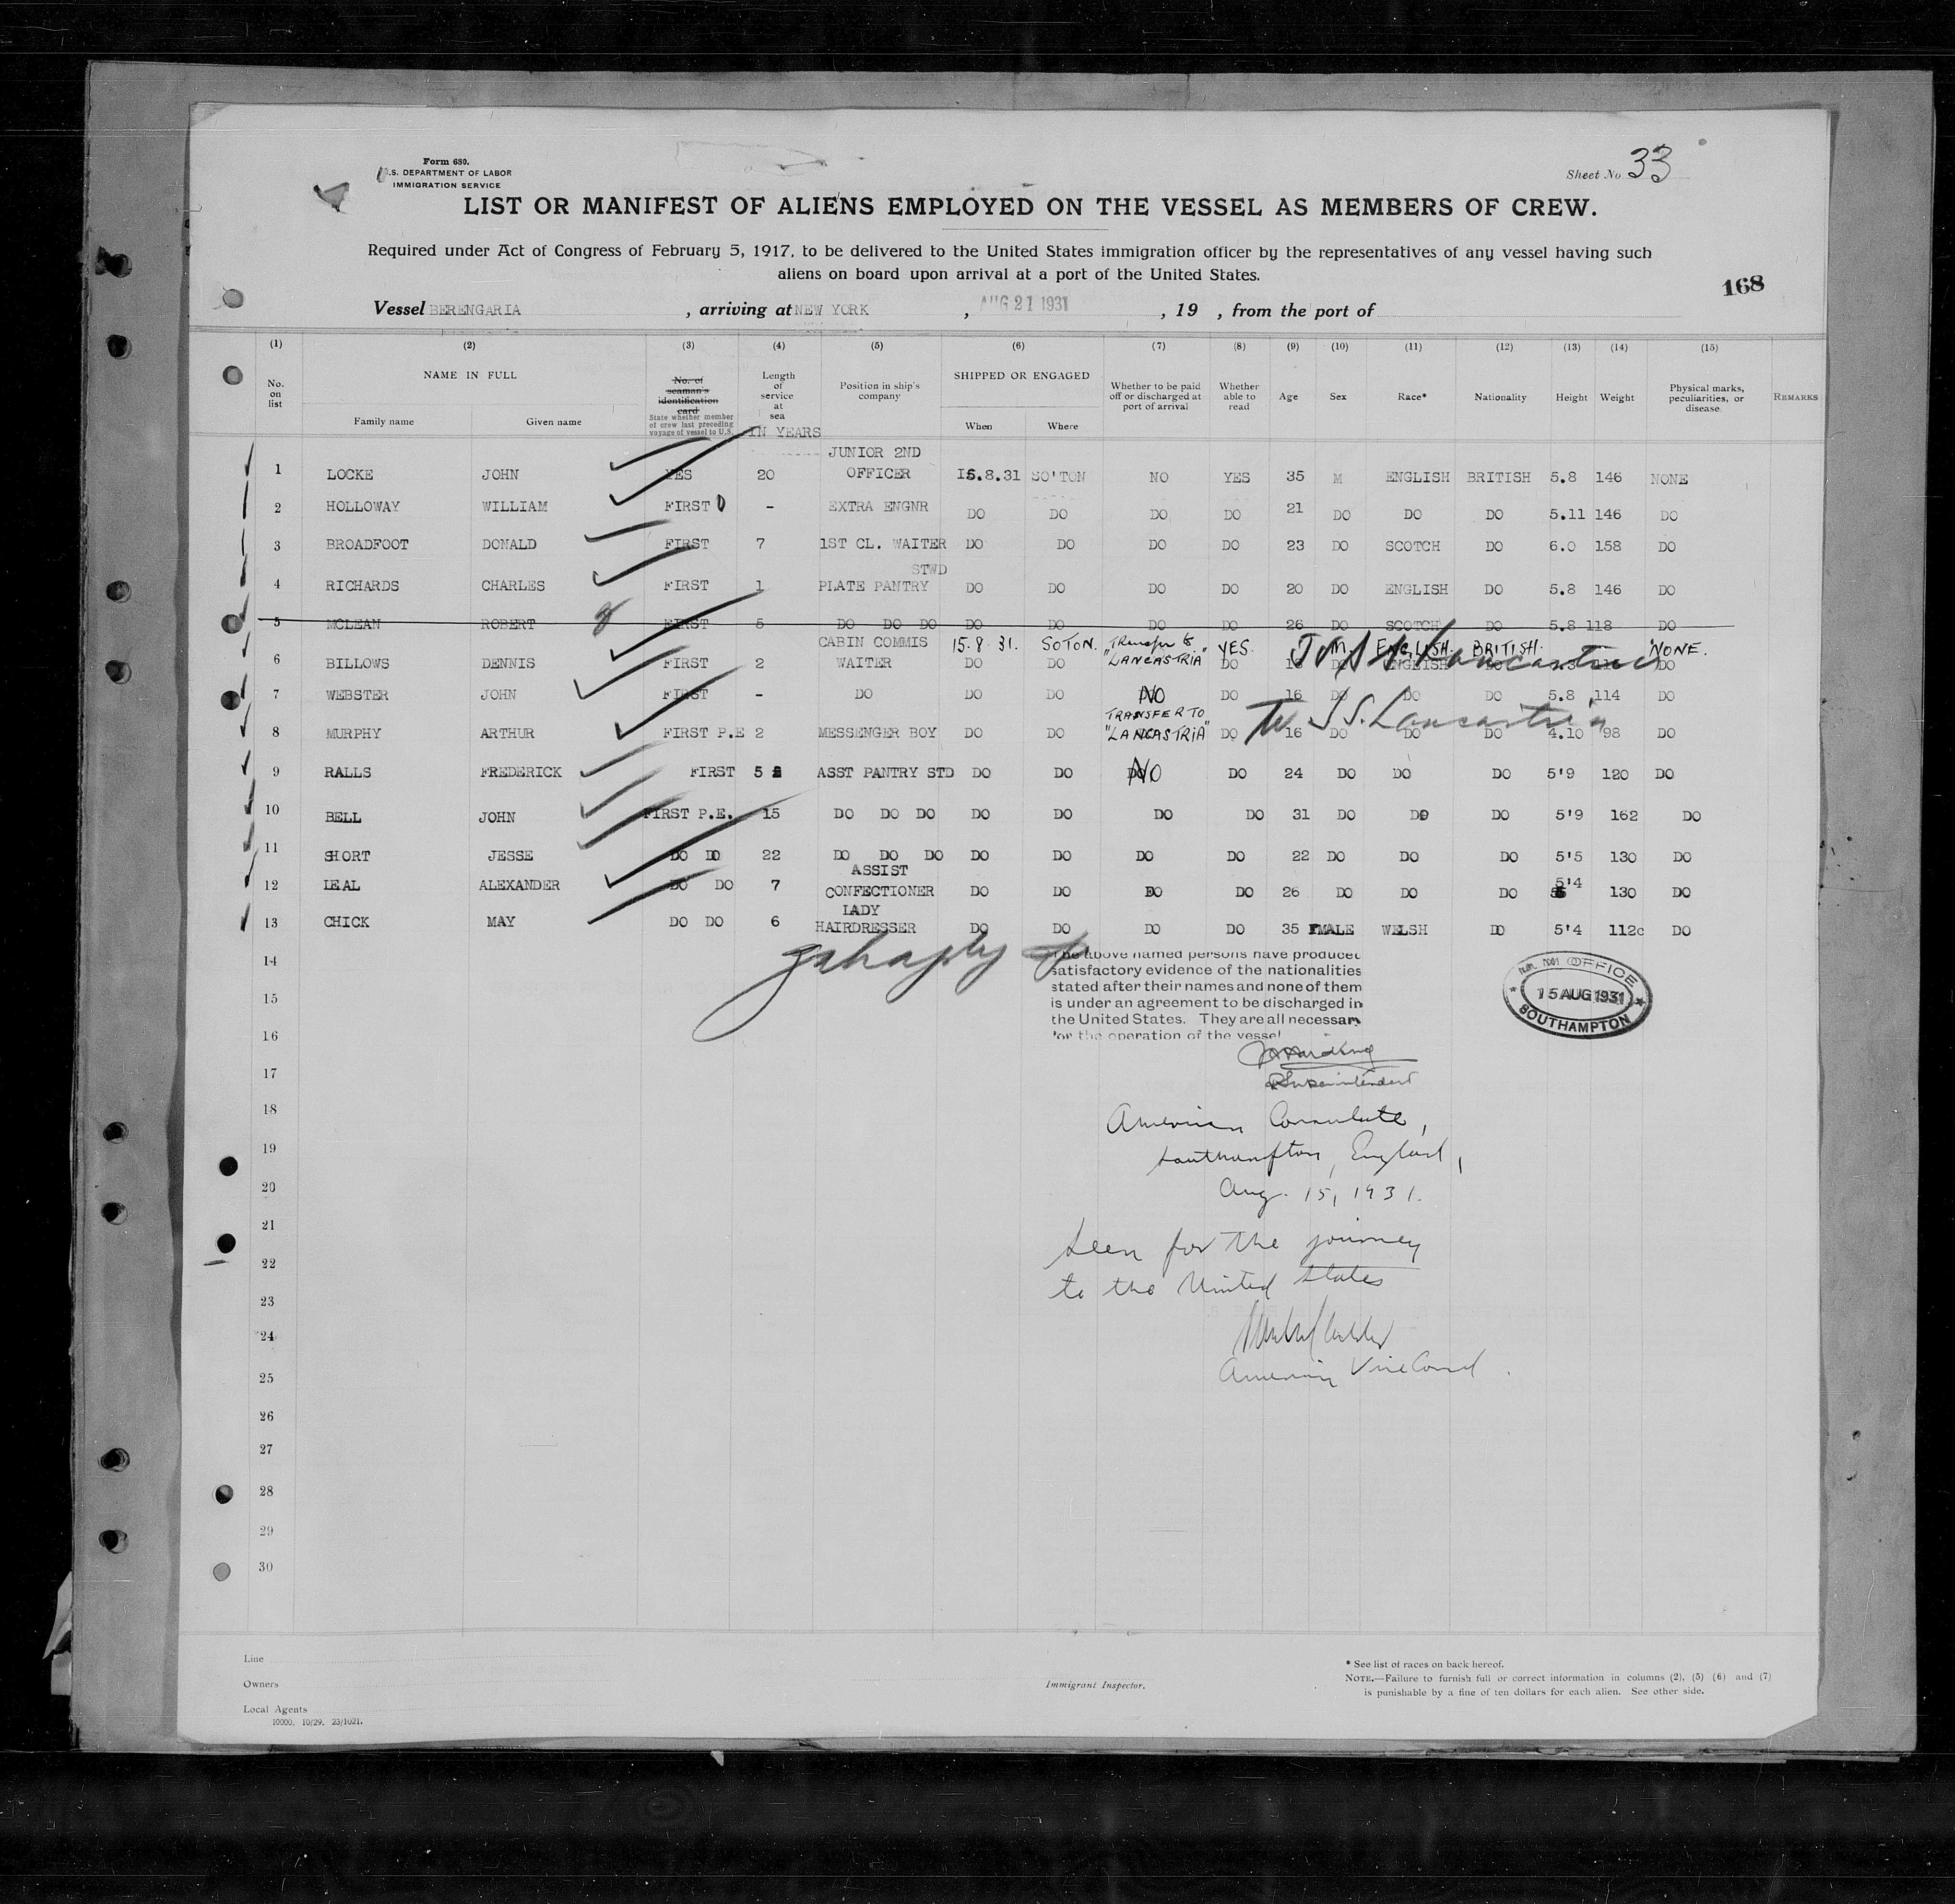 Form 680.
U.S. DEPARTMENT OF LABOR
IMMIGRATION SERVICE
Sheet No 33
LIST OR MANIFEST OF ALIENS EMPLOYED ON THE VESSEL AS MEMBERS OF CREW.
Required under Act of Congress of February 5, 1917, to be delivered to the United States immigration officer by the representatives of any vessel having such
aliens on board upon arrival at a port of the United States.
168
Vessel BERENGARIA, arriving at NEW YORK, AUG 21 1931, 19 , from the port of
(1) (2) (3) (4) (5) (6) (7) (8) (9) (10) (11) (12) (13) (14) (15)
No. on list NAME IN FULL Family name Given name No. of seaman's identification card State whether member of crew last preceding voyage of vessel to U.S. Length of service at sea IN YEARS Position in ship's company SHIPPED OR ENGAGED When Where Whether to be paid off or discharged at port of arrival Whether able to read Age Sex Race* Nationality Height Weight Physical marks, peculiarities, or disease REMARKS
1 LOCKE JOHN YES 20 JUNIOR 2ND OFFICER 15.8.31 SO'TON NO YES 35 M ENGLISH BRITISH 5.8 146 NONE
2 HOLLOWAY WILLIAM FIRST - EXTRA ENGNR DO DO DO DO 21 DO DO DO 5.11 146 DO
3 BROADFOOT DONALD FIRST 7 1ST CL. WAITER DO DO DO DO 23 DO SCOTCH DO 6.0 158 DO
4 RICHARDS CHARLES FIRST 1 PLATE PANTRY STWD DO DO DO DO 20 DO ENGLISH DO 5.8 146 DO
5 MCLEAN ROBERT FIRST 5 DO DO DO DO DO DO DO 26 DO SCOTCH DO 5.8 118 DO
15.8.31. SOTON. Transfer to "LANCASTRIA" YES. M. ENGLISH. BRITISH. NONE.
6 BILLOWS DENNIS FIRST 2 CABIN COMMIS WAITER DO DO DO DO ENGLISH DO
To SS Lancastria
7 WEBSTER JOHN FIRST - DO DO DO NO DO 16 DO DO DO 5.8 114 DO
8 MURPHY ARTHUR FIRST P.E 2 MESSENGER BOY DO DO TRANSFER TO "LANCASTRIA" DO 16 DO DO DO 4.10 98 DO
To SS. Lancastria
9 RALLS FREDERICK FIRST 5 ASST PANTRY STD DO DO NO DO 24 DO DO DO 5'9 120 DO
10 BELL JOHN FIRST P.E. 15 DO DO DO DO DO DO DO 31 DO DO DO 5'9 162 DO
11 SHORT JESSE DO DO 22 DO DO DO DO DO DO DO 22 DO DO DO 5'5 130 DO
12 LEAL ALEXANDER DO DO 7 ASSIST CONFECTIONER DO DO DO DO 26 DO DO DO 5'4 130 DO
13 CHICK MAY DO DO 6 LADY HAIRDRESSER DO DO DO DO 35 FMALE WELSH DO 5'4 112 DO
14
The above named persons have produced
satisfactory evidence of the nationalities
stated after their names and none of them
is under an agreement to be discharged in
the United States. They are all necessary
for the operation of the vessel
OFFICE
15 AUG 1931
SOUTHAMPTON
15
16
17
Superintendent
18
American Consulate,
19
Southampton, England,
20
Aug. 15, 1931.
21
Seen for the journey
22
to the United States
23
24
25
American Vice Consul.
26
27
28
29
30
Line
Owners
Local Agents
10000. 10/29. 23/1021.
Immigrant Inspector.
* See list of races on back hereof.
NOTE.—Failure to furnish full or correct information in columns (2), (5) (6) and (7)
is punishable by a fine of ten dollars for each alien. See other side.